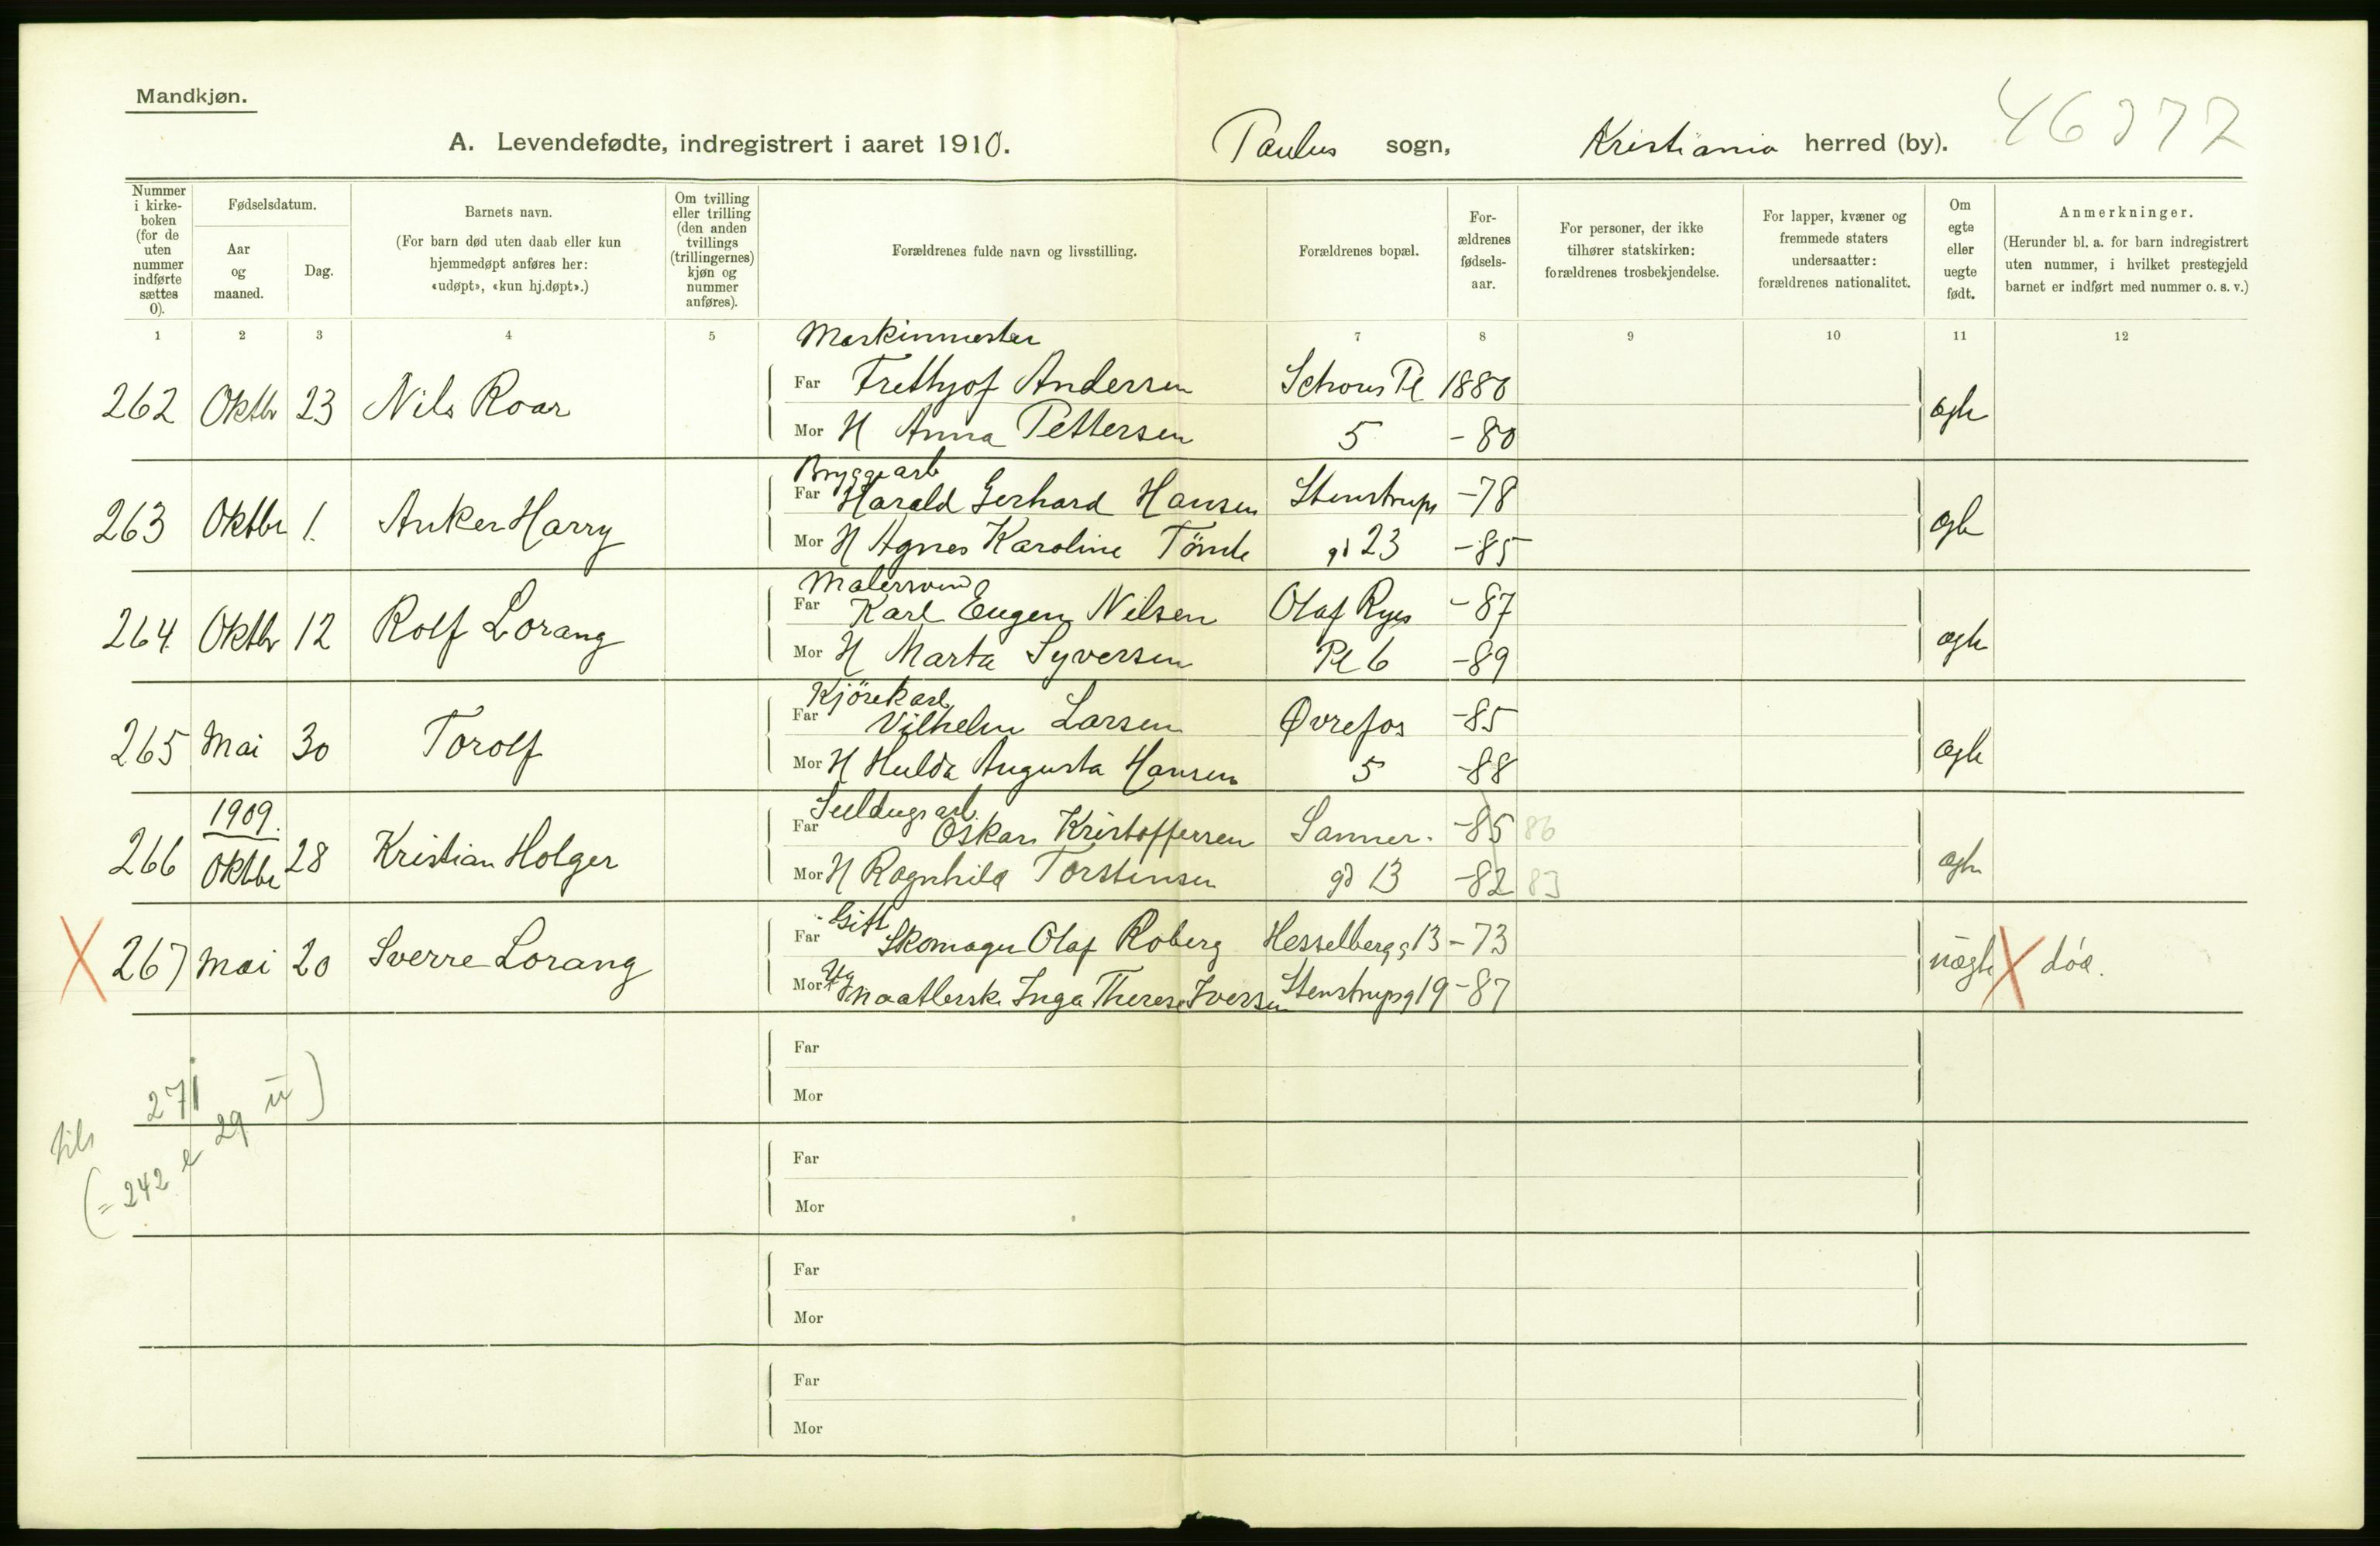 Mandkjøn.
A. Levendefødte, indregistrert i aaret 1910. Paulus sogn, Kristiania herred (by).
Nummer i kirke-boken (for de uten nummer indførte sættes 0).
Fødselsdatum.
Aar og maaned.
Dag.
Barnets navn.
(For barn død uten daab eller kun hjemmedøpt anføres her: «udøpt», «kun hj.døpt».)
Om tvilling eller trilling (den anden tvillings (trillingernes) kjøn og nummer anføres).
Forældrenes fulde navn og livsstilling.
Forældrenes bopæl.
For-ældrenes fødsels-aar.
For personer, der ikke tilhører statskirken: forældrenes trosbekjendelse.
For lapper, kvæner og fremmede staters undersaatter: forældrenes nationalitet.
Om egte eller uegte født.
Anmerkninger.
(Herunder bl. a. for barn indregistrert uten nummer, i hvilket prestegjeld barnet er indført med nummer o. s. v.)
1 2 3 4 5 7 8 9 10 11 12
Maskinmester
262 Oktbr 23 Nils Roar Far Frethjof Andersen Schous Pl 1880 ægte
Mor H Anna Pettersen 5 -80
Bryggearb
263 Oktbr 1. Anker Harry Far Harald Gerhard Hansen Stenstrups -78 ægte
Mor H Agnes Karoline Tömte gd 23 -85
Malersvend
264 Oktbr 12 Rolf Lorang Far Karl Eugen Nilsen Olaf Ryes -87 ægte
Mor H Marta Syversen Pl 6 -89
Kjörekarl
265 Mai 30 Torolf Far Vilhelm Larsen Øvrefos -85 ægte
Mor H Hulda Augusta Hansen 5 -88
1909.
Seildugsarb.
266 Oktbr 28 Kristian Holger Far Oskar Kristoffersen Sanner- -85 86 ægte
Mor H Ragnhild Torstensen gd 13 -82 83
Gift
X 267 Mai 20 Sverre Lorang Far Skomager Olaf Roberg Hesselbergg 13 -73 uægte X död.
Ug
Mor Maatlersk Inga Therese Iversen Stenstrupsg 19 -87
Far
Mor
271
tils
(= 242 e 29 u)
Far
Mor
Far
Mor
Far
Mor